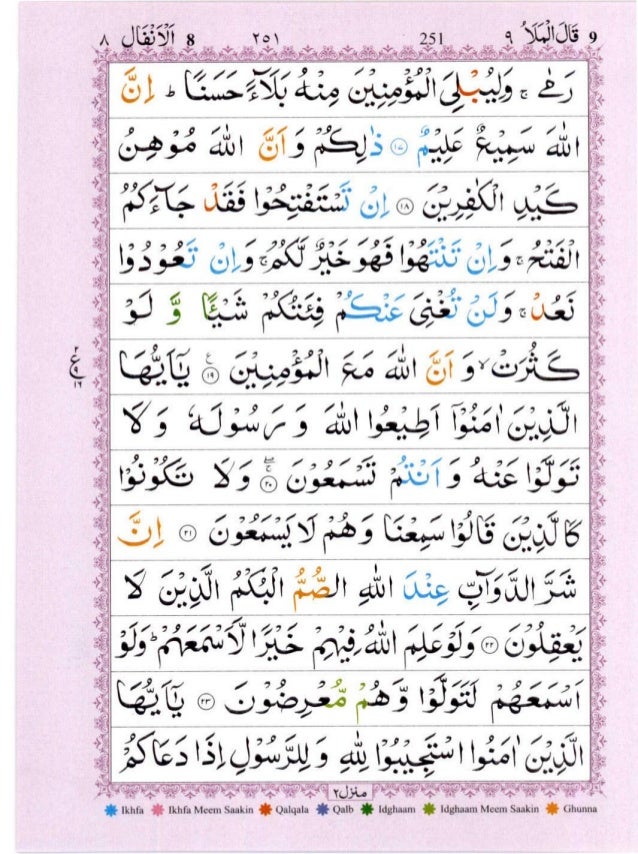 ٨ اَلْاَنْفَال 8 ٢٥١ 251 ٩ قَالَ الْمَلَاُ 9
رَمٰى ۚ وَلِيُبْلِىَ الْمُؤْمِنِيْنَ مِنْهُ بَلَآءً حَسَنًا ؕ اِنَّ
اللّٰهَ سَمِيْعٌ عَلِيْمٌ ﴿۱۷﴾ ذٰلِكُمْ وَ اَنَّ اللّٰهَ مُوْهِنُ
كَيْدِ الْكٰفِرِيْنَ ﴿۱۸﴾ اِنْ تَسْتَفْتِحُوْا فَقَدْ جَآءَكُمُ
الْفَتْحُ ۚ وَ اِنْ تَنْتَهُوْا فَهُوَ خَيْرٌ لَّكُمْ ۚ وَ اِنْ تَعُوْدُوْا
نَعُدْ ۚ وَ لَنْ تُغْنِىَ عَنْكُمْ فِئَتُكُمْ شَيْـًٔا وَّ لَوْ
كَثُرَتْ ۙ وَ اَنَّ اللّٰهَ مَعَ الْمُؤْمِنِيْنَ ﴿۱۹﴾ يٰۤاَيُّهَا
الَّذِيْنَ اٰمَنُوْۤا اَطِيْعُوا اللّٰهَ وَ رَسُوْلَهٗ وَ لَا
تَوَلَّوْا عَنْهُ وَ اَنْتُمْ تَسْمَعُوْنَ ﴿۲۰﴾ وَ لَا تَكُوْنُوْا
كَالَّذِيْنَ قَالُوْا سَمِعْنَا وَ هُمْ لَا يَسْمَعُوْنَ ﴿۲۱﴾ اِنَّ
شَرَّ الدَّوَآبِّ عِنْدَ اللّٰهِ الصُّمُّ الْبُكْمُ الَّذِيْنَ لَا
يَعْقِلُوْنَ ﴿۲۲﴾ وَ لَوْ عَلِمَ اللّٰهُ فِيْهِمْ خَيْرًا لَّاَسْمَعَهُمْ ؕ وَ لَوْ
اَسْمَعَهُمْ لَتَوَلَّوْا وَّ هُمْ مُّعْرِضُوْنَ ﴿۲۳﴾ يٰۤاَيُّهَا
الَّذِيْنَ اٰمَنُوا اسْتَجِيْبُوْا لِلّٰهِ وَ لِلرَّسُوْلِ اِذَا دَعَاكُمْ
منزل ٢
Ikhfa Ikhfa Meem Saakin Qalqala Qalb Idghaam Idghaam Meem Saakin Ghunna